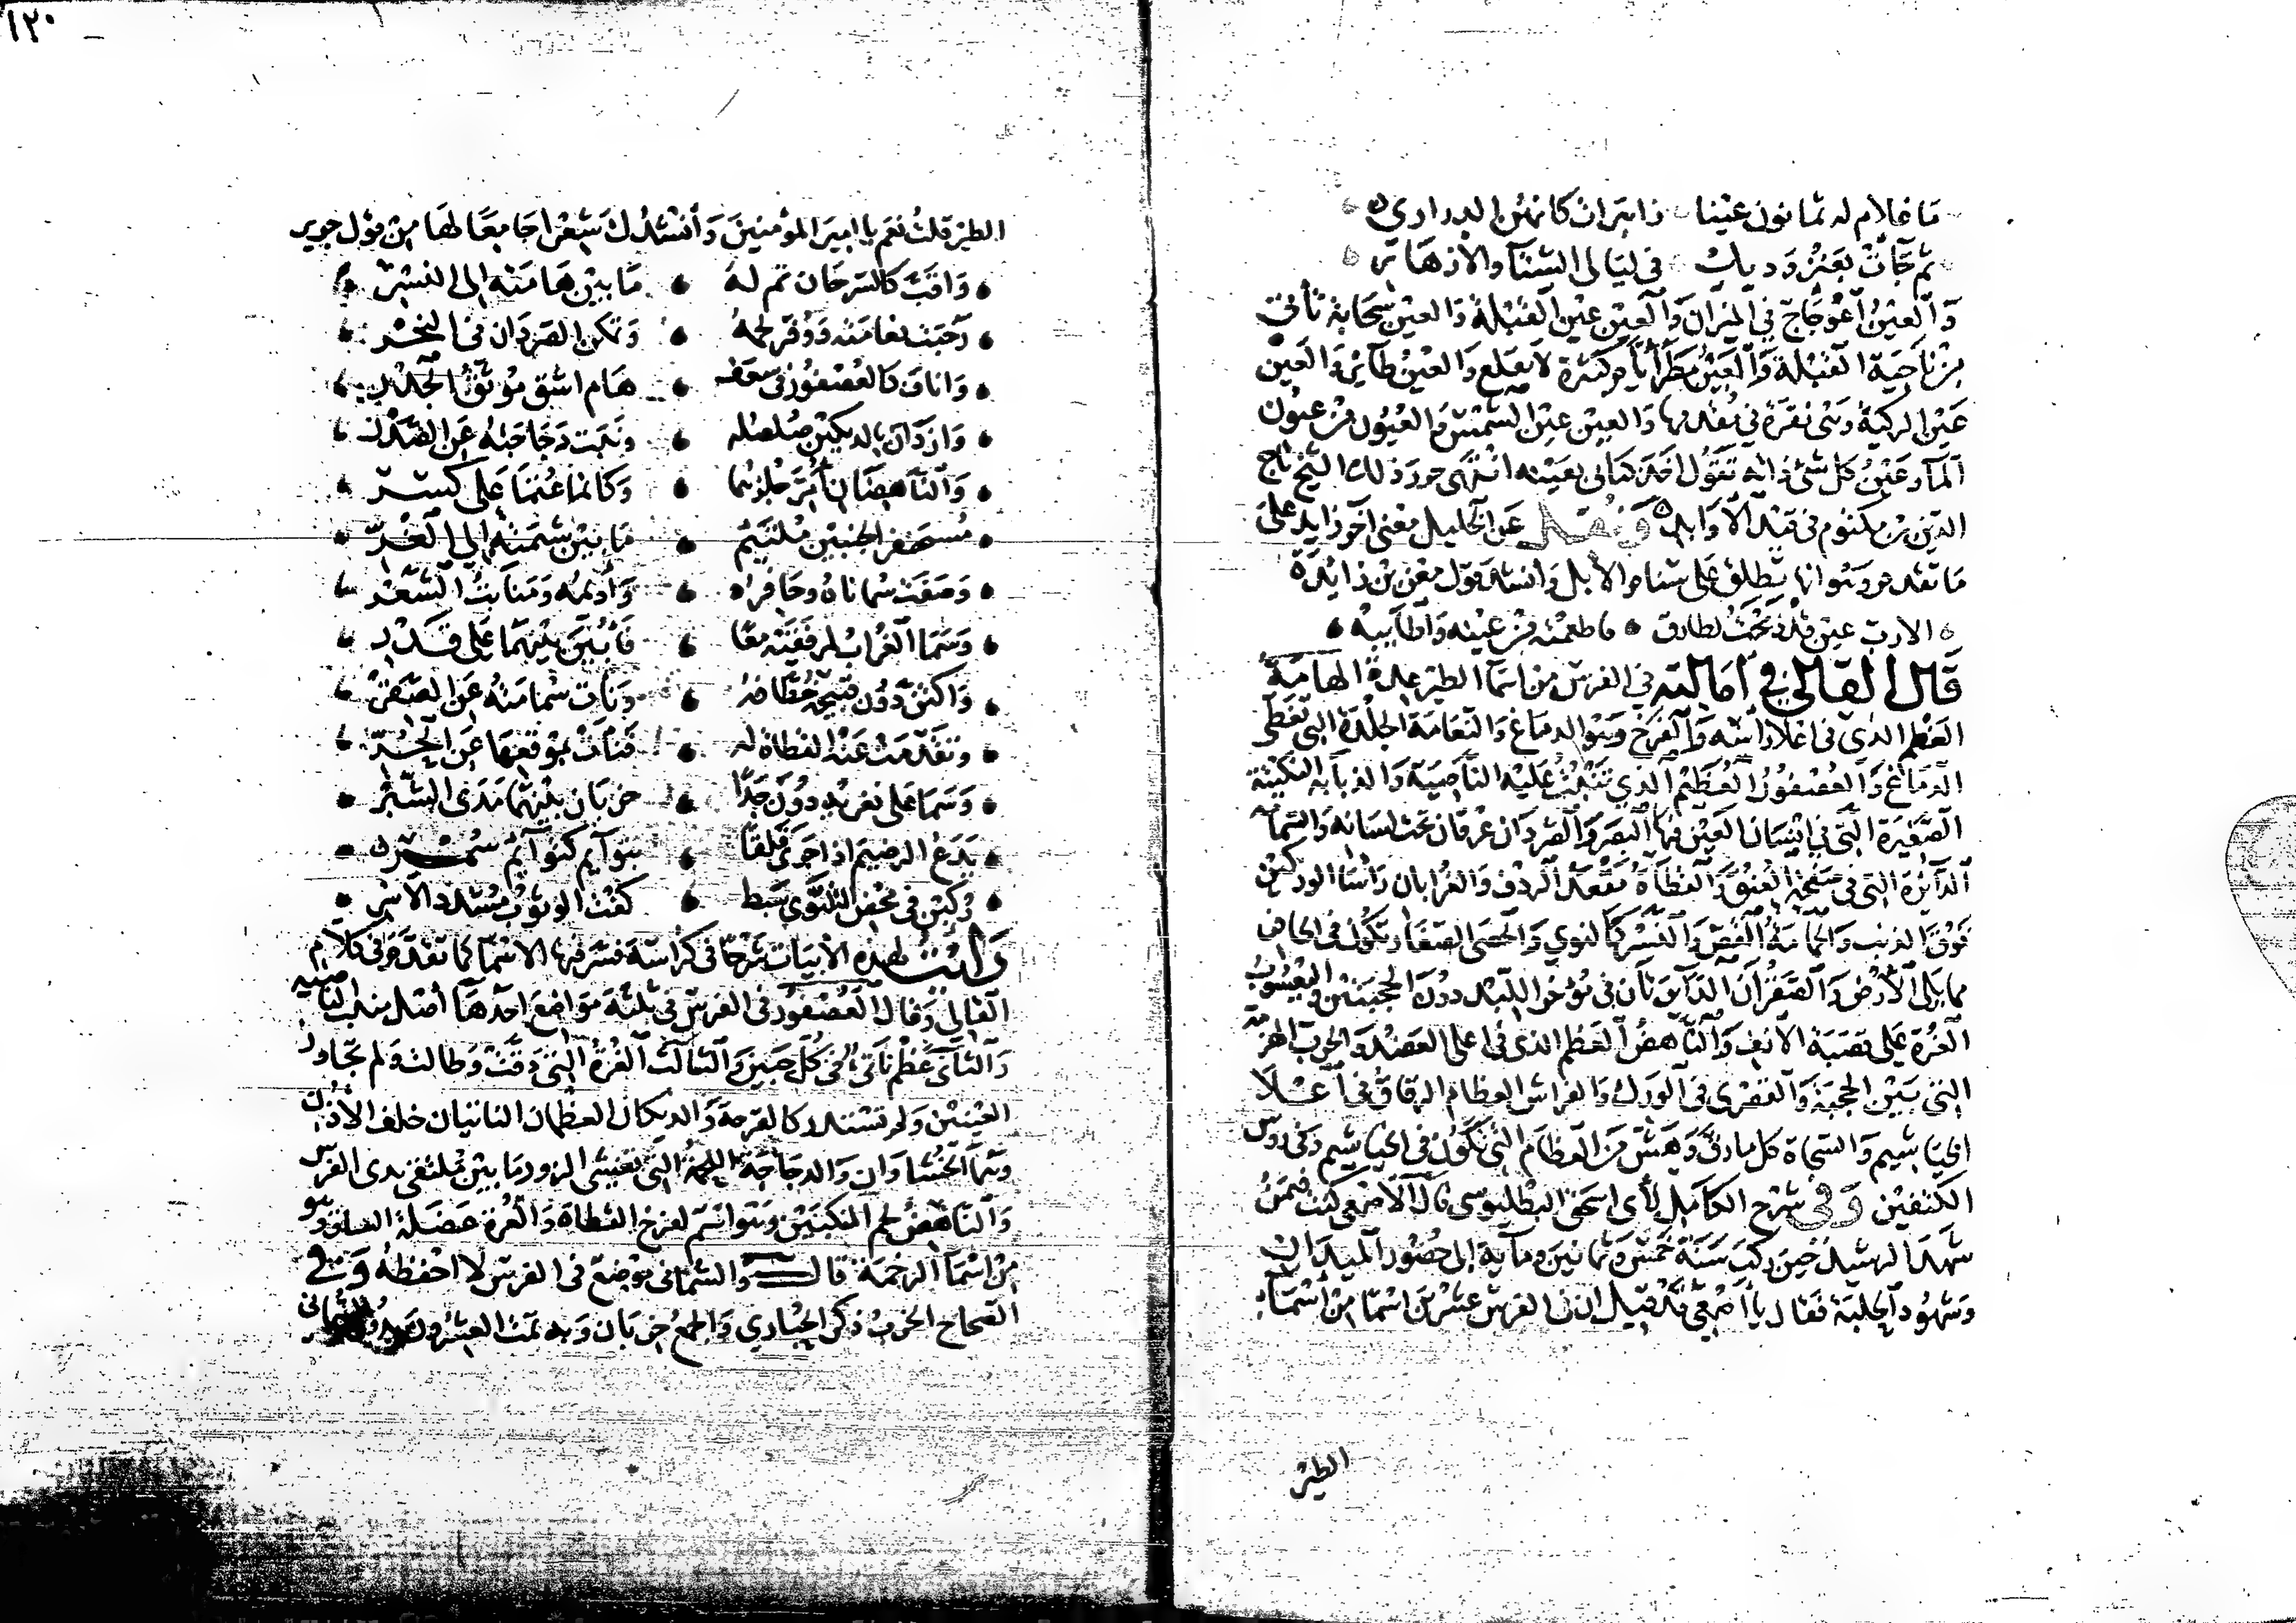 ما غلام له ثمانون عينا زاهرات كانهن الدراري
ثم جآت بعنز وديك في ليالي الشتآ والازهار
وَالعين اعوجاج في الميزان وَالعين عين القبلة وَالعين سحابة تأتي
من ناحية القبلة وَالعين مطر أيام كثيرة لا يقلع وَالعين طاير وَالعين
عين الركية وهي نقرة في مقدمها وَالعين عين الشمس والعيون من عيون
المآ وعين كل شي ذاته تقول اخذ كتابي بعينه انتهى جود ذلك الشيخ تاج
الدين بن مكتوم في قيد الاوابد ونقل عن الخليل معنى اخر زايد على
ما تقدم وهو انها تطلق على سنام الابل وانشد قول معن بن زايدة
الارب عين قد ذبحت لطارق فاطعمته من عينه واطايبه
قال القالي في اماليه في الفرس من اسمآ الطير عدة الهامة
العظم الذي في اعلا راسه وَالفرخ وهو الدماغ وَالنعامة الجلدة التي تغطي
الدماغ وَالعصفور العظم الذي تنبت عليه الناصية وَالذبابة النكتة
الصغيرة التي في انسان العين فيها البصر وَالصردان عرقان تحت لسانه وَالسمامة
الدايرة التي في صفحة العنق وَالقطاة مقعد الردف وَالغرابان راسا الوركين
فوق الذنب وَالحمامة القص وَالنسر كالنوى وَالحصى الصغار يكون في الحافر
مما يلي الارض وَالصقران الدايرتان في مؤخر اللبد دون الحجبتين واليعسوب
الغرة على قصبة الانف وَالناهض العظم الذي في اعلى العضد وَالخرب الهزمة
التي بين الحجبة وَالقصرى في الورك وَالفراش العظام الرقاق في اعلا
الخياشيم وَالسحاة كل ما دق وهش من العظام التي تكون في الخياشيم وفي رووس
الكتفين وفي شرح الكامل لأبي اسحق البطليوسي قال الاصمعي كنت فيمن
شهد الرشيد حين ركب سنة خمس وثمانين وماية الى حضور الميدان
وشهود الحلبة فقال يا اصمعي قد قيل ان في الفرس عشرين اسما من اسمآ
الطير
١٢٠
الطير قلت نعم يا امير المؤمنين وأنشدك شعرا جامعا لها من قول جرير
وَاقب كالسرحان تم له ما بين هامته الى النسر
رحبت نعامته ووفر لحمه وتمكن الصردان في النحر
وَاناف كالعصفور في سعف هام اشم موثق الجذر
وَازدان بالديكين صلصله ونبت دجاجته عن الصدر
وَالناهضان أمر جلزهما وكانما عثما على كسر
مسحنفر الجنبين ملتئم ما بين شيمته الى الغر
وصفت سماناه وحافره وَأديمه ومنابت الشعر
وسما الغراب لمرفقيه معا فأبين بينهما على قدر
وَاكتن دون قبيحه خطافه ونات سمامته عن الصقر
وتقدمت عنه القطاة له فنأت بموقعها عن الحر
وسما على نقويه دون حدا خربان بينهما مدى الشبر
يدع الرضيم اذا جرى فلقا بتوآيم كتوآيم سمر
ركبن في محض الشوى سبط كفت الوثوب مشدد الاسر
رأيت لهذه الابيات شرحا في كراسة فسر فيها الاسمآ كما تقدم في كلام
القالي وَقال العصفور في الفرس في ثلثة مواضع احدها أصل منبت الناصية
وَالثاني عظم ناتئ في كل جبين وَالثالث الغرة التي دقت وطالت ولم تجاوز
العينين ولم تستدر كالقرحة وَالديكان العظمان الناتيان خلف الاذن
وهما الخششاوان وَالدجاجة اللحمة التي تغشي الزور ما بين ملتقى يدى الفرس
وَالناهض لحم المنكبين وهو اسم لفرخ القطاة وَالغرة عضلة الساق وهو
من اسمآ الرخمة قال وَالسماني موضع في الفرس لا احفظه وفي
الصحاح الخرب ذكر الحبارى وَالجمع خربان وبه تمت العشرون